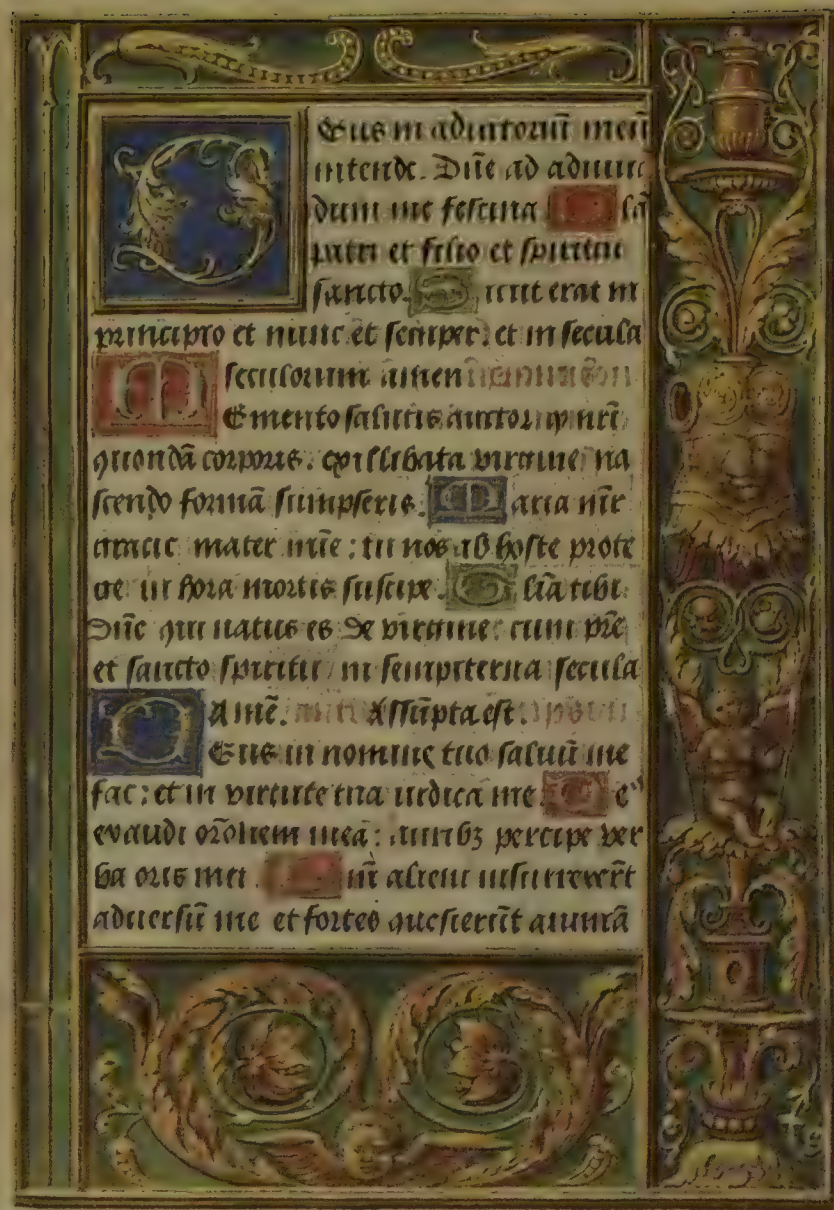 Deus in adiutoriū meū
intende. Dñe ad adiuuā
dum me festina Glā
patri et filio et spiritui
sancto. Sicut erat in
principio et nunc et semper: et in secula
seculorum amen
Memento salutis auctor ꝙ nr̄i
quondā corporis. ex illibata virgine na
scendo formā sumpseris. Maria mr̄
gracie mater mīe: tu nos ab hoste prote
ge in hora mortis suscipe. Glīa tibi
Dñe qui natus es de virgine: cum pr̄e
et sancto spiritu in sempiterna secula
Amē. Assūpta est.
Deus in nomine tuo saluū me
fac: et in virtute tua iudica me.
exaudi or̄onem meā: auribꝫ percipe ver
ba oris mei. alieni insurrexer̄t
aduersū me et fortes quesierūt animā